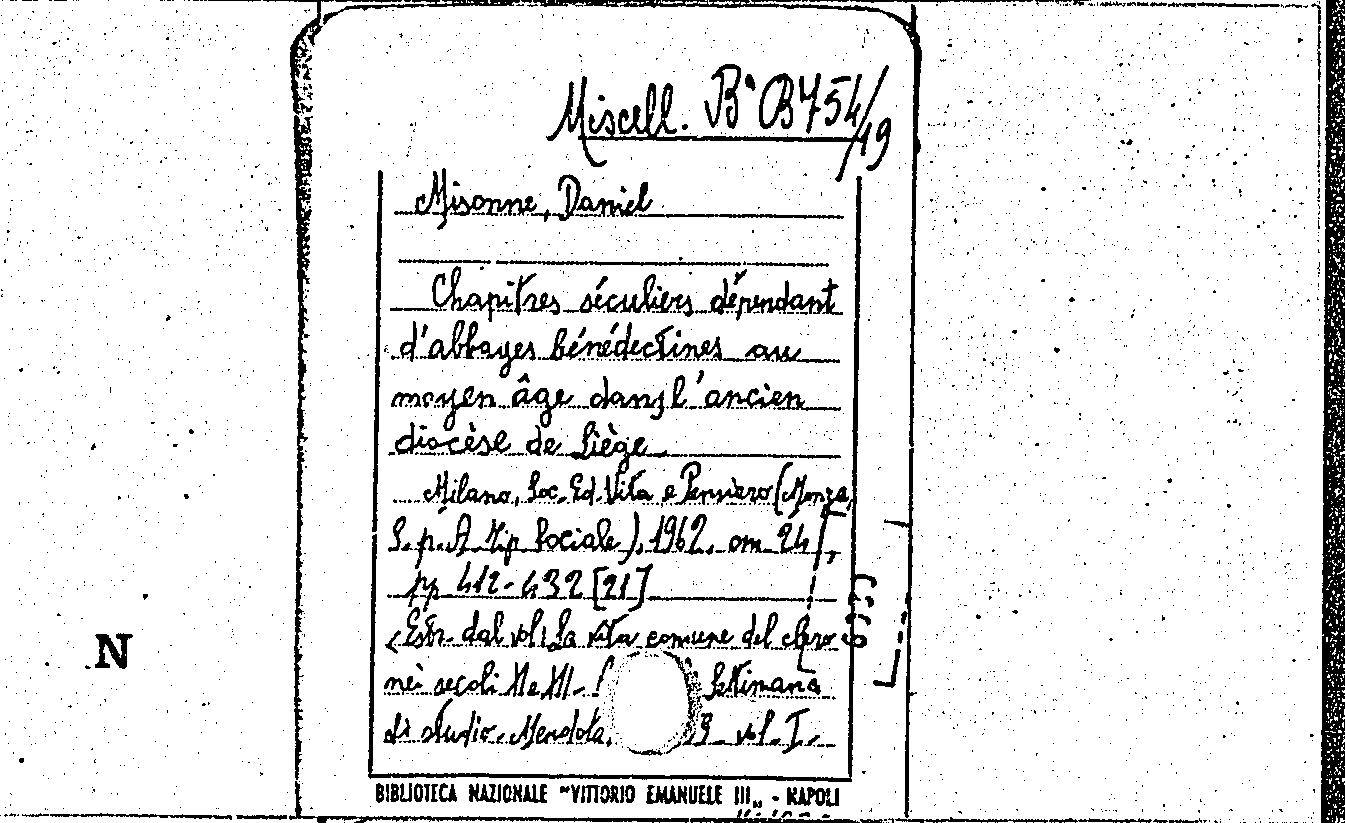 Miscell. Bª B 754/19
Misonne, Daniel
Chapitres séculiers dépendant
d'abbayes bénédictines au
moyen âge dans l'ancien
diocèse de Liège
Milano, Soc. Ed. Vita e Pensiero (Monza,
S. p. A. Tip. Sociale), 1962. cm 24,
pp 412-432 [21]
Estr. dal vol: La vita comune del clero
nei secoli XI e XII. Settimana
di studio. Mendola, vol. I.
N
BIBLIOTECA NAZIONALE "VITTORIO EMANUELE III„ - NAPOLI